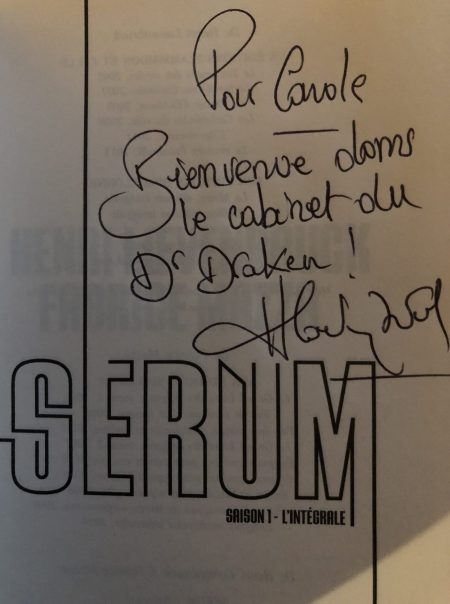 Pour Carole
Bienvenue dans
le cabinet du
Dr Draken !
SERUM
SAISON 1 - L'INTÉGRALE